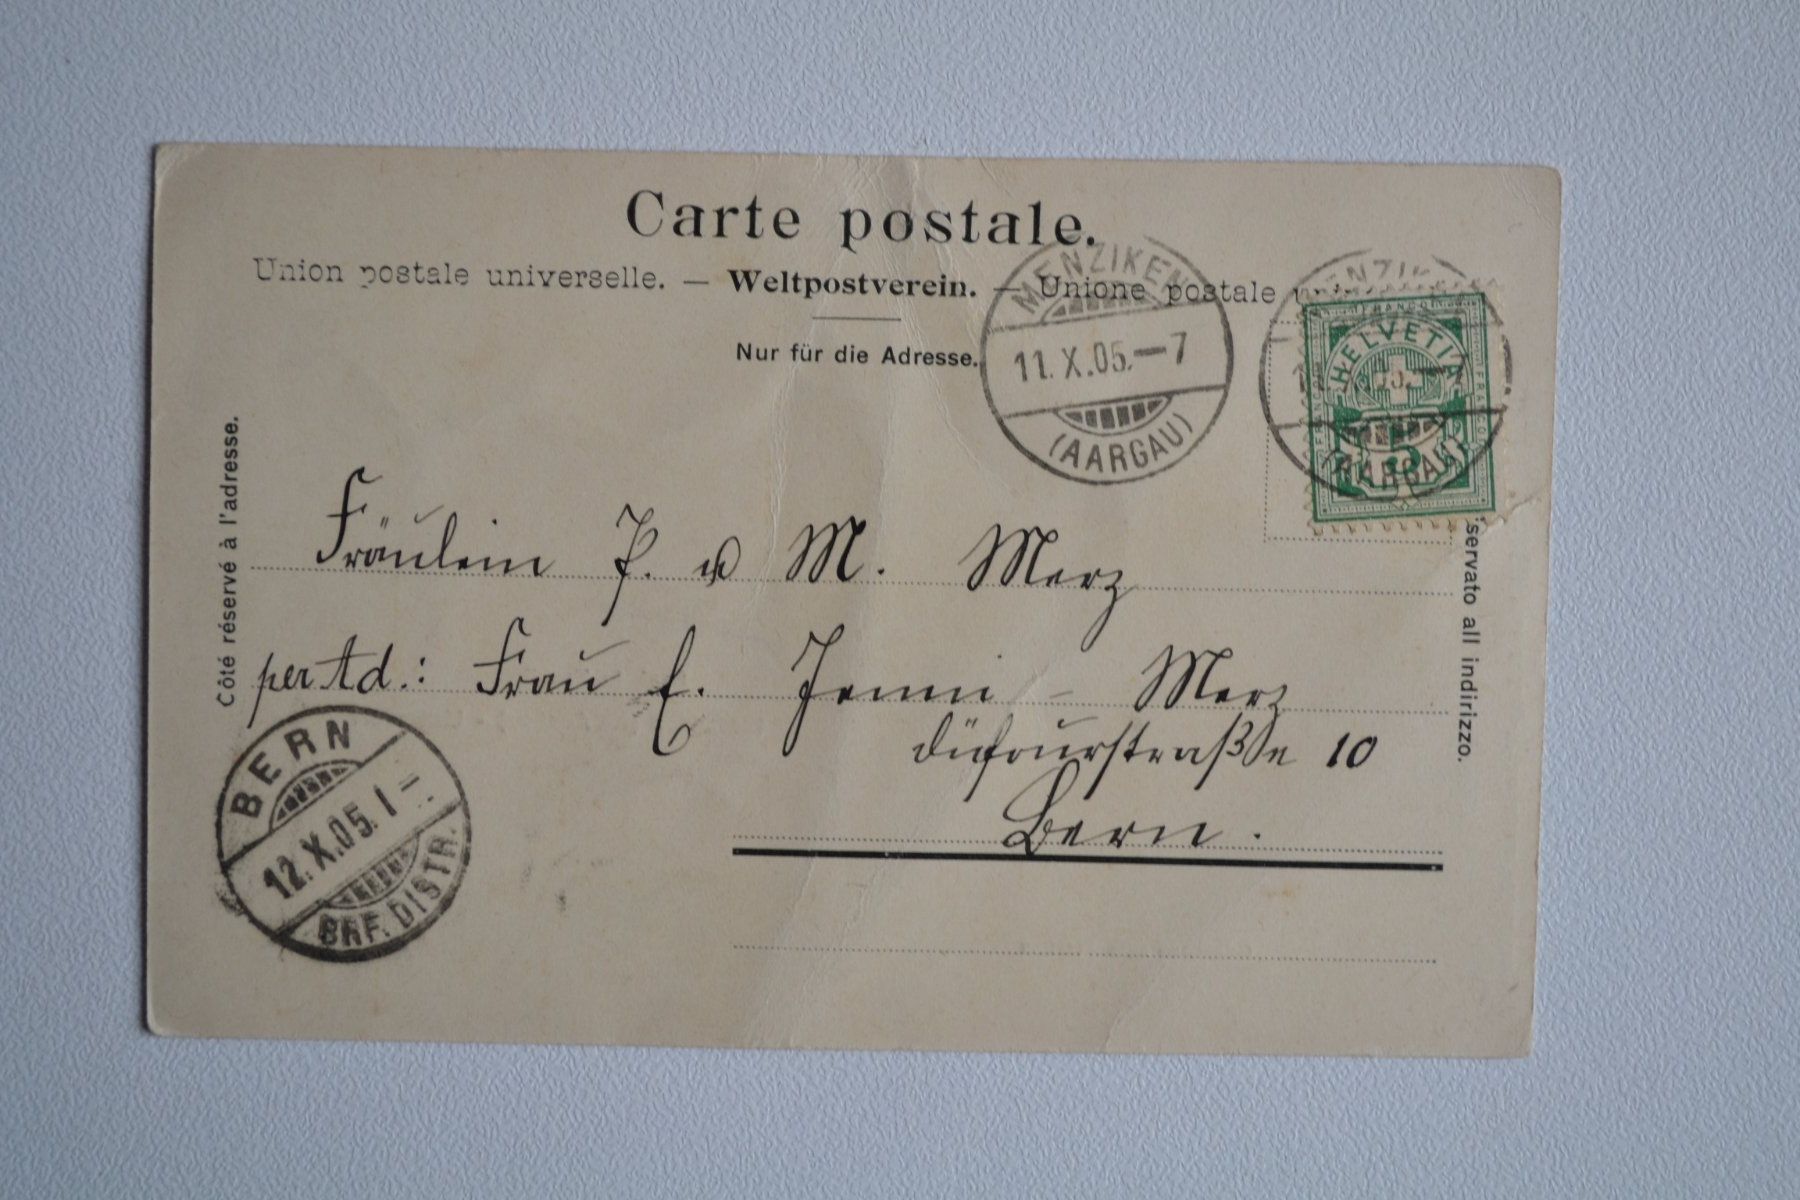 Carte postale.
Union postale universelle. — Weltpostverein. — Unione postale
Nur für die Adresse.
MENZIKEN
11.X.05.—7
(AARGAU)
MENZIK
(AARGAU)
FRANCO
HELVETIA
5
Côté réservé à l'adresse.
servato all indirizzo.
Fräulein P. u M. Merz
per Ad.: Frau E. Jenni - Merz
Dufourstraße 10
Bern.
BERN
12.X.05.1-
BRF. DISTR.